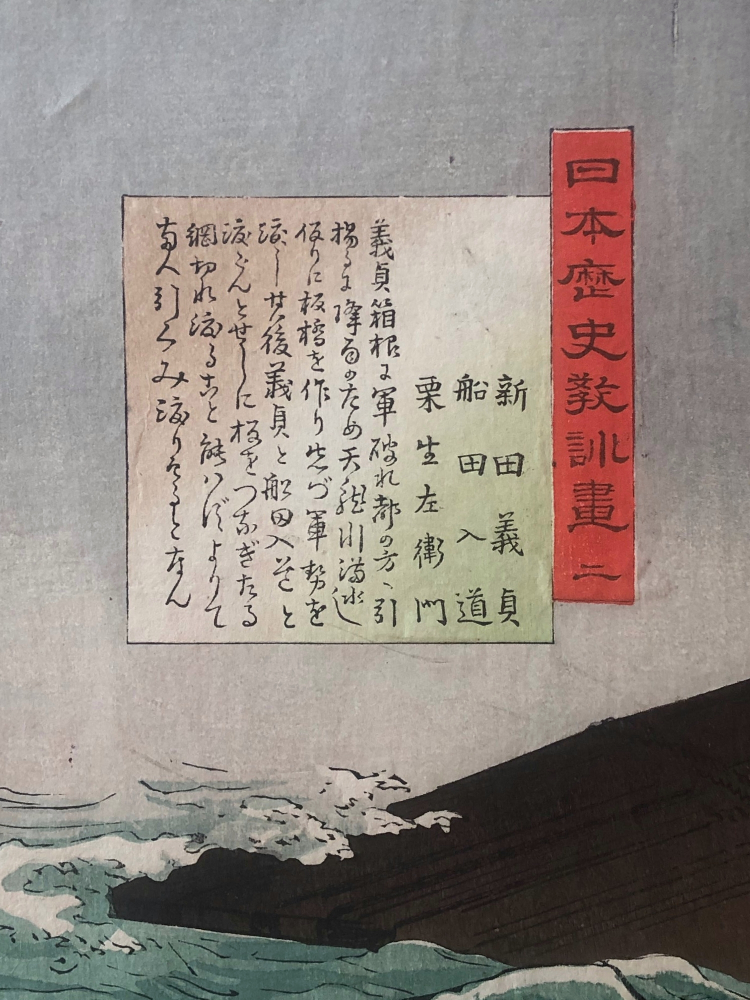 日本歴史教訓畫 二
新田義貞
船田入道
栗生左衛門
義貞箱根に軍破れ都の方へ引
揚るに降雨のため天龍川満水し
仮りに板橋を作り先づ軍勢を
渡し其後義貞と船田入道と
渡らんとせしに板をつなぎたる
綱切れ渡ること能はずよりて
両人引くみ渡りたるとなん